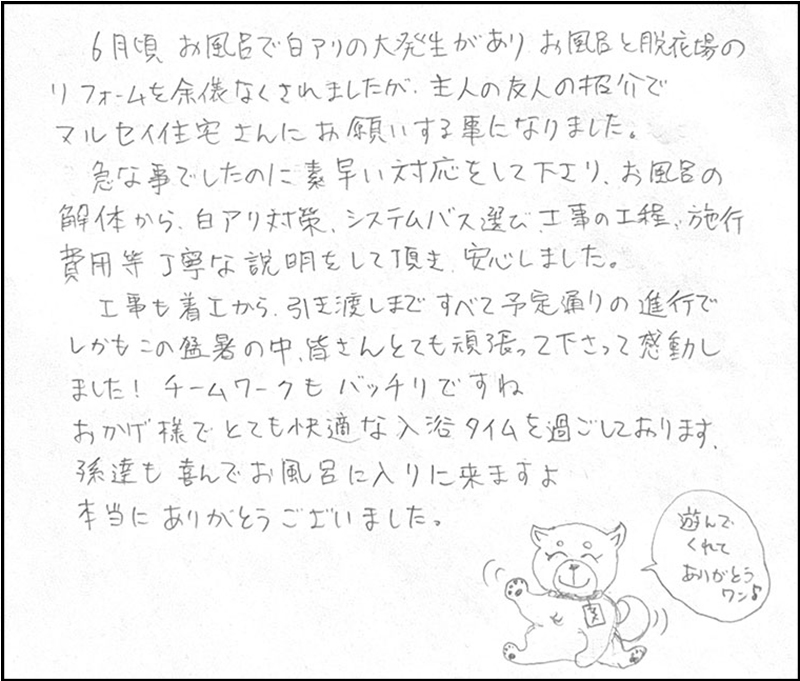 6月頃 お風呂で白アリの大発生があり お風呂と脱衣場の
リフォームを余儀なくされましたが、主人の友人の招介で
マルセイ住宅さんにお願いする事になりました。
急な事でしたのに素早い対応をして下さり、お風呂の
解体から、白アリ対策、システムバス選び、工事の工程、施行
費用等丁寧な説明をして頂き、安心しました。
工事も着工から、引き渡しまですべて予定通りの進行で
しかもこの猛暑の中、皆さんとても頑張って下さって感動し
ました！ チームワークもバッチリですね
おかげ様でとても快適な入浴タイムを過ごしております、
孫達も喜んでお風呂に入りに来ますよ
本当にありがとうございました。
遊んで
くれて
ありがとう
ワン♪